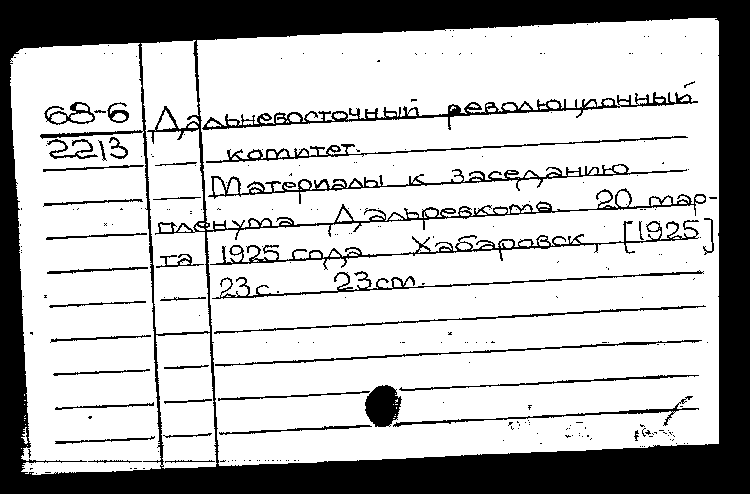 68-6 Дальневосточный революционный
2213 комитет.
Материалы к заседанию
пленума Дальревкома 20 мар-
та 1925 года. Хабаровск, [1925]
23 с. 23 см.